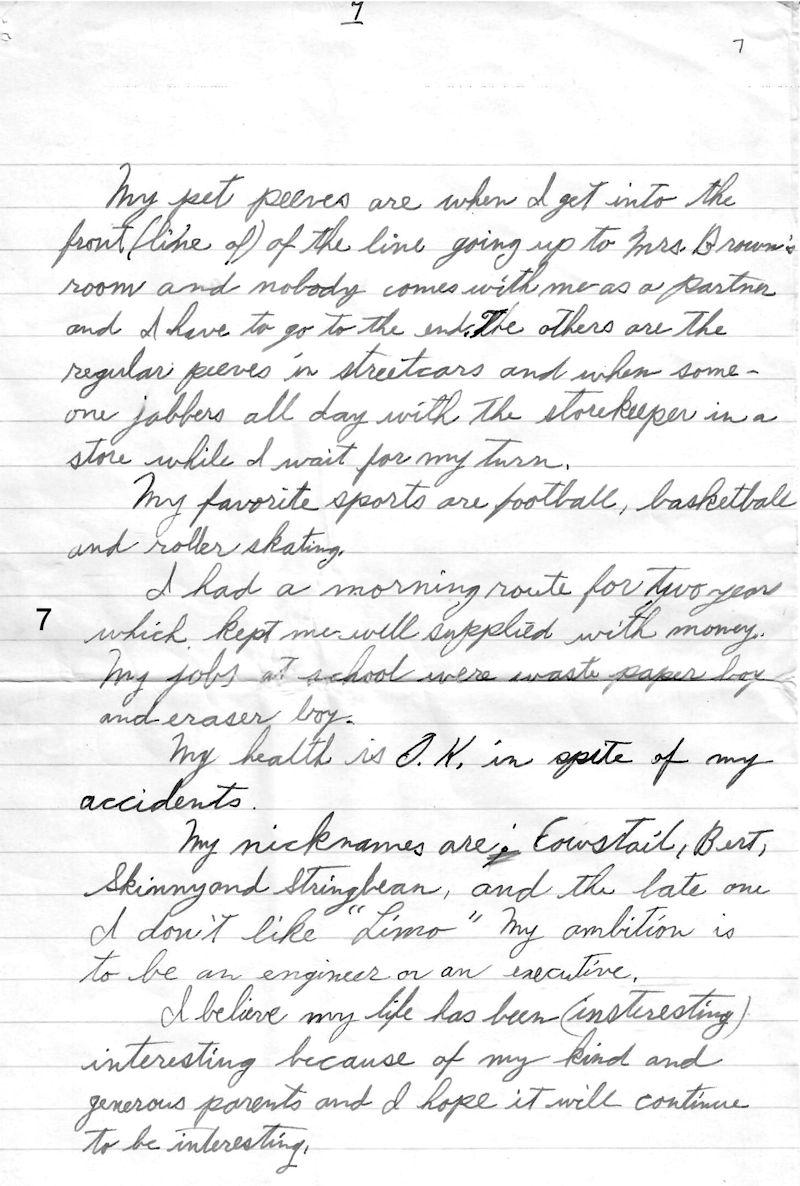 7
7
My pet peeves are when I get into the
front (line of) of the line going up to Mrs. Brown's
room and nobody comes with me as a partner
and I have to go to the end. The others are the
regular peeves in streetcars and when some-
one jabbers all day with the storekeeper in a
store while I wait for my turn.
My favorite sports are football, basketball
and roller skating.
I had a morning route for two years
7
which kept me well supplied with money.
My jobs at school were waste paper boy
and eraser boy.
My health is O.K. in spite of my
accidents.
My nicknames are; Cowstail, Bert,
Skinny and Stringbean, and the late one
I don't like "Limo" My ambition is
to be an engineer or an executive.
I believe my life has been (insteresting)
interesting because of my kind and
generous parents and I hope it will continue
to be interesting.